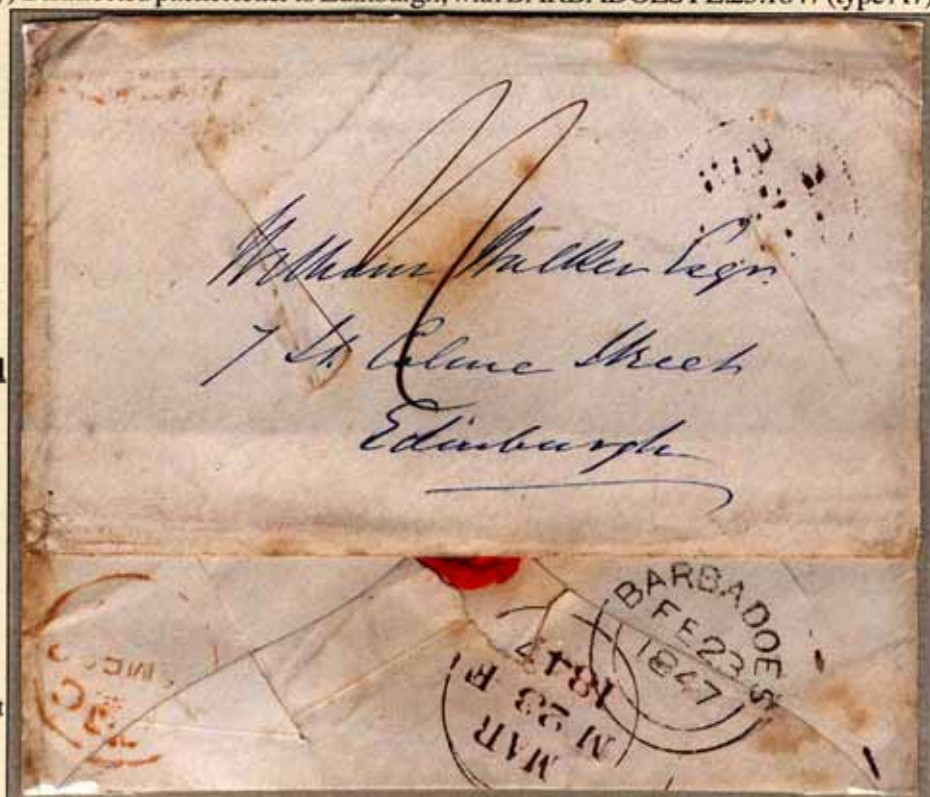 packet letter to Edinburgh, with BARBADOES FE.23.1847 (type
William Walker Esqr.
7 St. Colme Street
Edinburgh
BARBADOES
FE 23
1847
MAR
M 23 F
1847